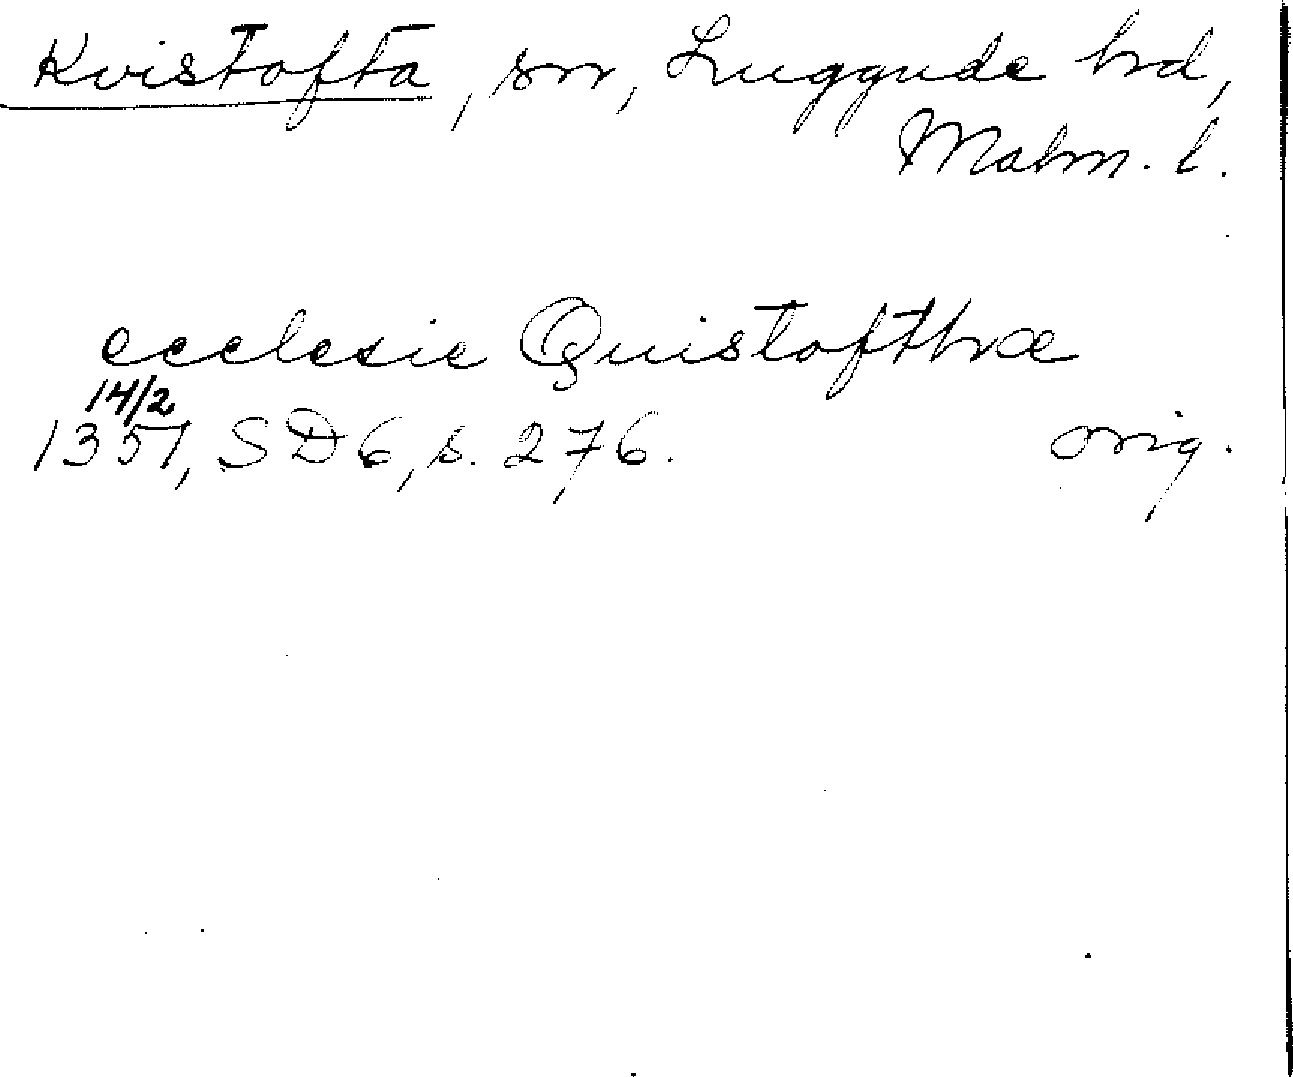 Kvistofta, sn, Luggude hd,
Malm. l.
ecclesie Quistofthæ
14/2
1351, SD6, s. 276. orig.